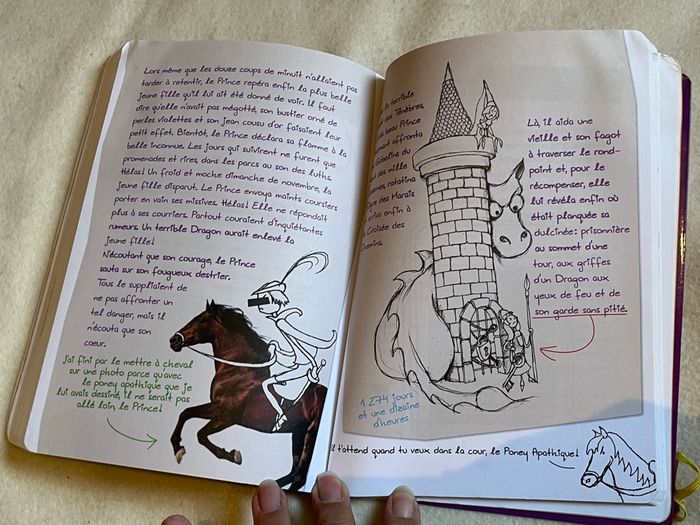 Lors même que les douze coups de minuit n'allaient pas
tarder à retentir, le Prince repéra enfin la plus belle
jeune fille qu'il lui ait été donné de voir. Il faut
dire qu'elle n'avait pas mégotté, son bustier orné de
perles violettes et son jean cousu d'or faisaient leur
petit effet. Bientôt, le Prince déclara sa flamme à la
belle inconnue. Les jours qui suivirent ne furent que
promenades et rires, dans les parcs au son des luths.
Hélas! Un froid et moche dimanche de novembre, la
jeune fille disparut. Le Prince envoya maints coursiers
porter en vain ses missives. Hélas! Elle ne répondait
plus à ses courriers. Partout couraient d'inquiétantes
rumeurs. Un terrible Dragon aurait enlevé la
jeune fille!
N'écoutant que son courage, le Prince
sauta sur son fougueux destrier.
Tous le suppliaient de
ne pas affronter un
tel danger, mais il
n'écouta que son
coeur.
J'ai fini par le mettre à cheval
sur une photo parce qu'avec
le poney apathique que je
lui avais dessiné, il ne serait pas
allé loin, le Prince!
la terrible
des Ténèbres,
beau Prince
affronta
Gobelins du
des mille
ratatina
Tigre des Marais
arriva enfin à
Croisée des
Chemins.
Là, il aida une
vieille et son fagot
à traverser le rond-
point et, pour le
récompenser, elle
lui révéla enfin où
était planquée sa
dulcinée: prisonnière
au sommet d'une
tour, aux griffes
d'un Dragon aux
yeux de feu et de
son garde sans pitié.
1 274 jours
et une dizaine
d'heures
Il t'attend quand tu veux dans la cour, le Poney Apathique!